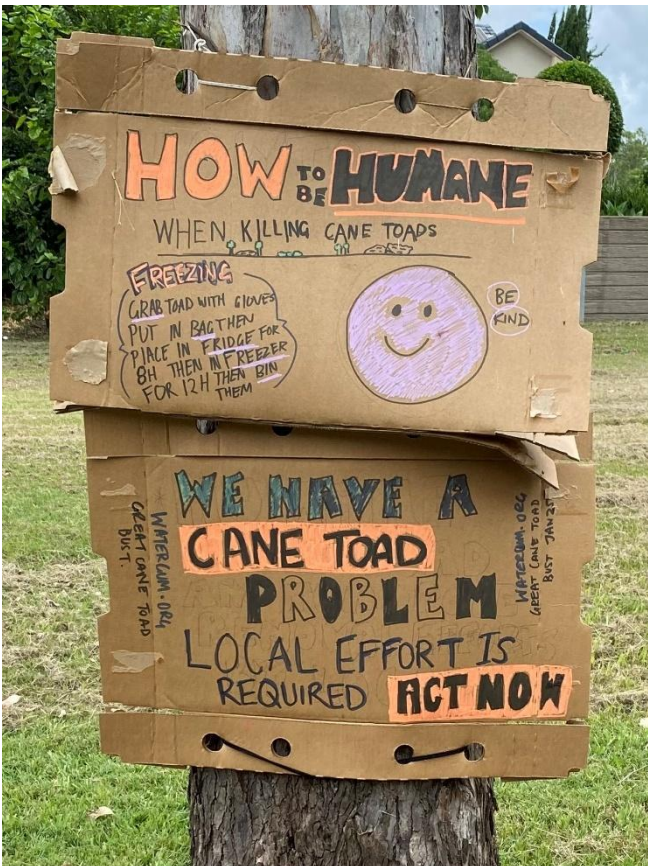 HOW TO BE HUMANE
WHEN KILLING CANE TOADS
FREEZING
GRAB TOAD WITH GLOVES
PUT IN BAG THEN
PLACE IN FRIDGE FOR
8H THEN IN FREEZER
FOR 12H THEN BIN
THEM
BE
KIND
WE HAVE A
CANE TOAD
PROBLEM
LOCAL EFFORT IS
REQUIRED ACT NOW
WATERGUM.ORG
GREAT CANE TOAD
BUST.
WATERGUM.ORG
GREAT CANE TOAD
BUST JAN 25